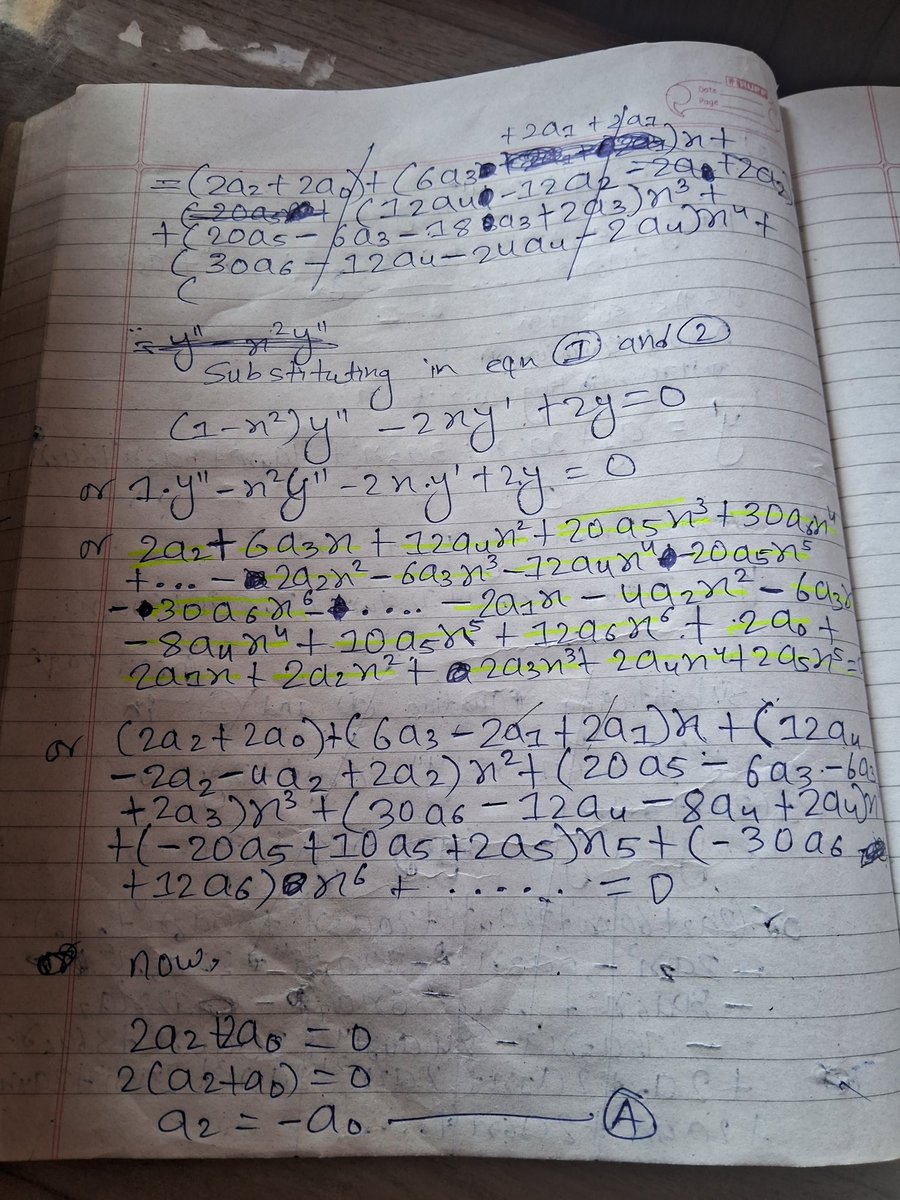 Date
Page
+2a₁ + 2a₁
= (2a₂ + 2a₀) + (6a₃ )x +
(20a₅ + (12a₄ - 12a₂ - 2a + 2a₂
+ (20a₅ - 6a₃ - 18a₃ + 2a₃)x³ +
(30a₆ - 12a₄ - 24a₄ - 2a₄)x⁴ +
(
= y'' x²y''
Substituting in eqn ① and ②
(1-x²)y'' - 2xy' + 2y = 0
or 1.y'' - x²y'' - 2x.y' + 2y = 0
or 2a₂ + 6a₃x + 12a₄x² + 20a₅x³ + 30a₆x⁴
+... - 2a₂x² - 6a₃x³ - 12a₄x⁴ - 20a₅x⁵
- 30a₆x⁶ - ..... - 2a₁x - 4a₂x² - 6a₃x
- 8a₄x⁴ + 10a₅x⁵ + 12a₆x⁶ + 2a₀ +
2a₁x + 2a₂x² + 2a₃x³ + 2a₄x⁴ + 2a₅x⁵ =
or (2a₂ + 2a₀) + (6a₃ - 2a₁ + 2a₁)x + (12a₄
- 2a₂ - 4a₂ + 2a₂)x² + (20a₅ - 6a₃ - 6a₃
+ 2a₃)x³ + (30a₆ - 12a₄ - 8a₄ + 2a₄)x
+ (-20a₅ + 10a₅ + 2a₅)x5 + (-30a₆
+ 12a₆)x⁶ + ...... = 0
now,
2a₂ + 2a₀ = 0
2(a₂ + a₀) = 0
a₂ = -a₀ Ⓐ